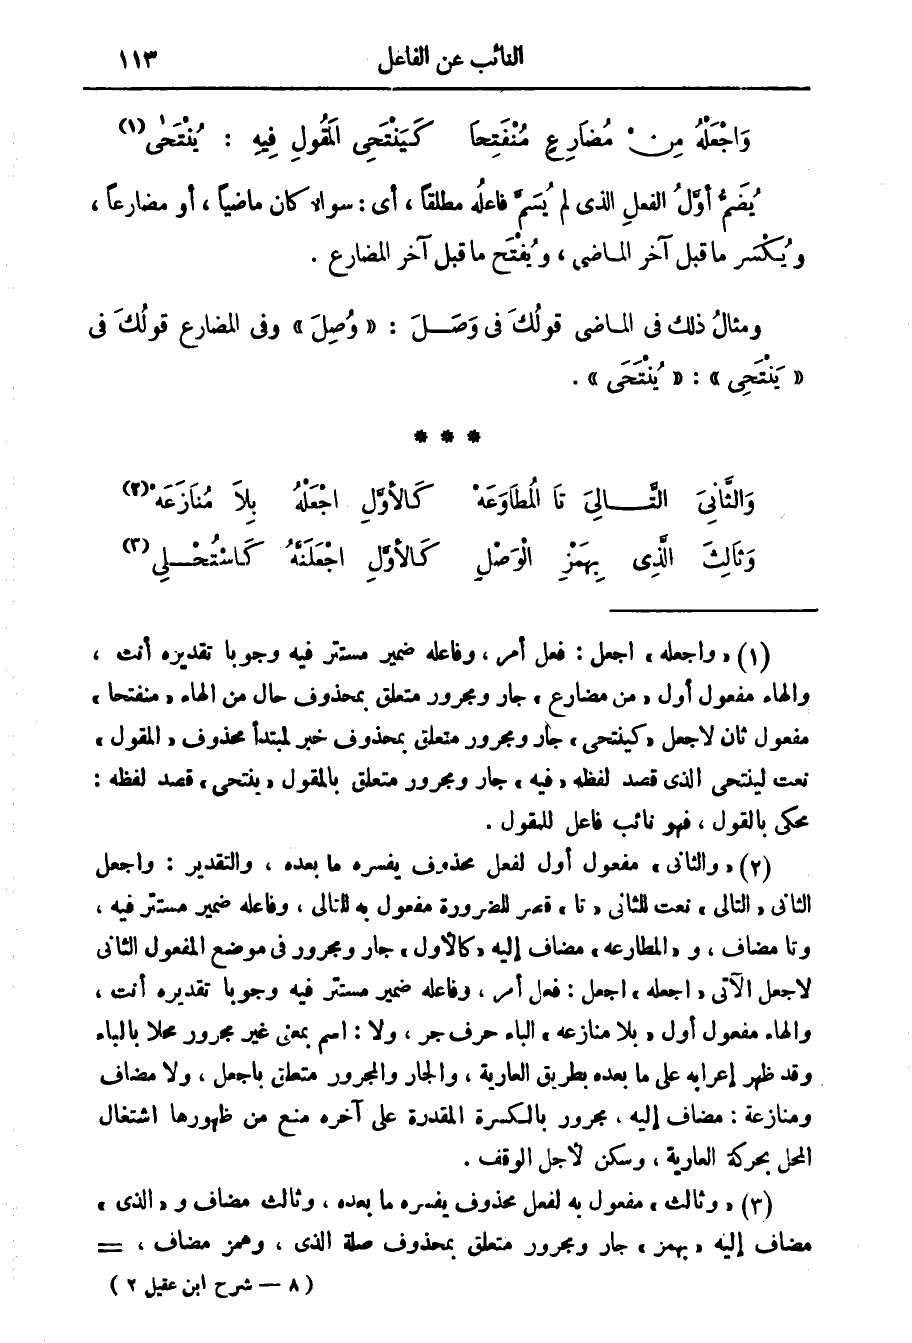 النائب عن الفاعل ١١٣
وَاجْعَلْهُ مِنْ مُضَارِعٍ مُنْفَتِحَا كَيَنْتَحِي الْمَقُولِ فِيهِ : يُنْتَحَىٰ (١)
يُضَمُّ أوَّلُ الفعلِ الذى لم يُسَمَّ فاعلُه مطلقاً ، أى : سواء كان ماضياً ، أو مضارعاً ،
ويُكْسَر ما قبل آخر الماضى ، ويُفْتَح ما قبل آخر المضارع .
ومثالُ ذلك فى الماضى قولُكَ فى وَصَلَ : « وُصِلَ » وفى المضارع قولُكَ فى
« يَنْتَحِى » : « يُنْتَحَى » .
* * *
وَالثَّانِىَ التَّالِىَ تَا الْمُطَاوَعَهْ كَالأوَّلِ اجْعَلْهُ بِلاَ مُنَازَعَهْ (٢)
وَثَالِثَ الَّذِى بِهَمْزِ الْوَصْلِ كَالأوَّلِ اجْعَلَنَّهُ كَاسْتُحْلِى (٣)
(١) « واجعله » اجعل : فعل أمر ، وفاعله ضمير مستتر فيه وجوبا تقديره أنت ،
والهاء مفعول أول « من مضارع » جار ومجرور متعلق بمحذوف حال من الهاء « منفتحا »
مفعول ثان لاجعل « كينتحى » جار ومجرور متعلق بمحذوف خبر لمبتدأ محذوف « المقول »
نعت لينتحى الذى قصد لفظه « فيه » جار ومجرور متعلق بالمقول « ينتحى » قصد لفظه :
محكى بالقول ، فهو نائب فاعل للمقول .
(٢) « والثانى » مفعول أول لفعل محذوف يفسره ما بعده ، والتقدير : واجعل
الثانى « التالى » نعت للثانى « تا » قصر للضرورة مفعول به للتالى ، وفاعله ضمير مستتر فيه ،
وتا مضاف ، و « المطاوعه » مضاف إليه « كالأول » جار ومجرور فى موضع المفعول الثانى
لاجعل الآتى « اجعله » اجعل : فعل أمر ، وفاعله ضمير مستتر فيه وجوبا تقديره أنت ،
والهاء مفعول أول « بلا منازعه » الباء حرف جر ، ولا : اسم بمعنى غير مجرور محلا بالباء
وقد ظهر إعرابه على ما بعده بطريق العارية ، والجار والمجرور متعلق باجعل ، ولا مضاف
ومنازعة : مضاف إليه ، مجرور بالكسرة المقدرة على آخره منع من ظهورها اشتغال
المحل بحركة العارية ، وسكن لأجل الوقف .
(٣) « وثالث » مفعول به لفعل محذوف يفسره ما بعده ، وثالث مضاف و « الذى »
مضاف إليه « بهمز » جار ومجرور متعلق بمحذوف صلة الذى ، وهمز مضاف ، =
( ٨ — شرح ابن عقيل ٢ )